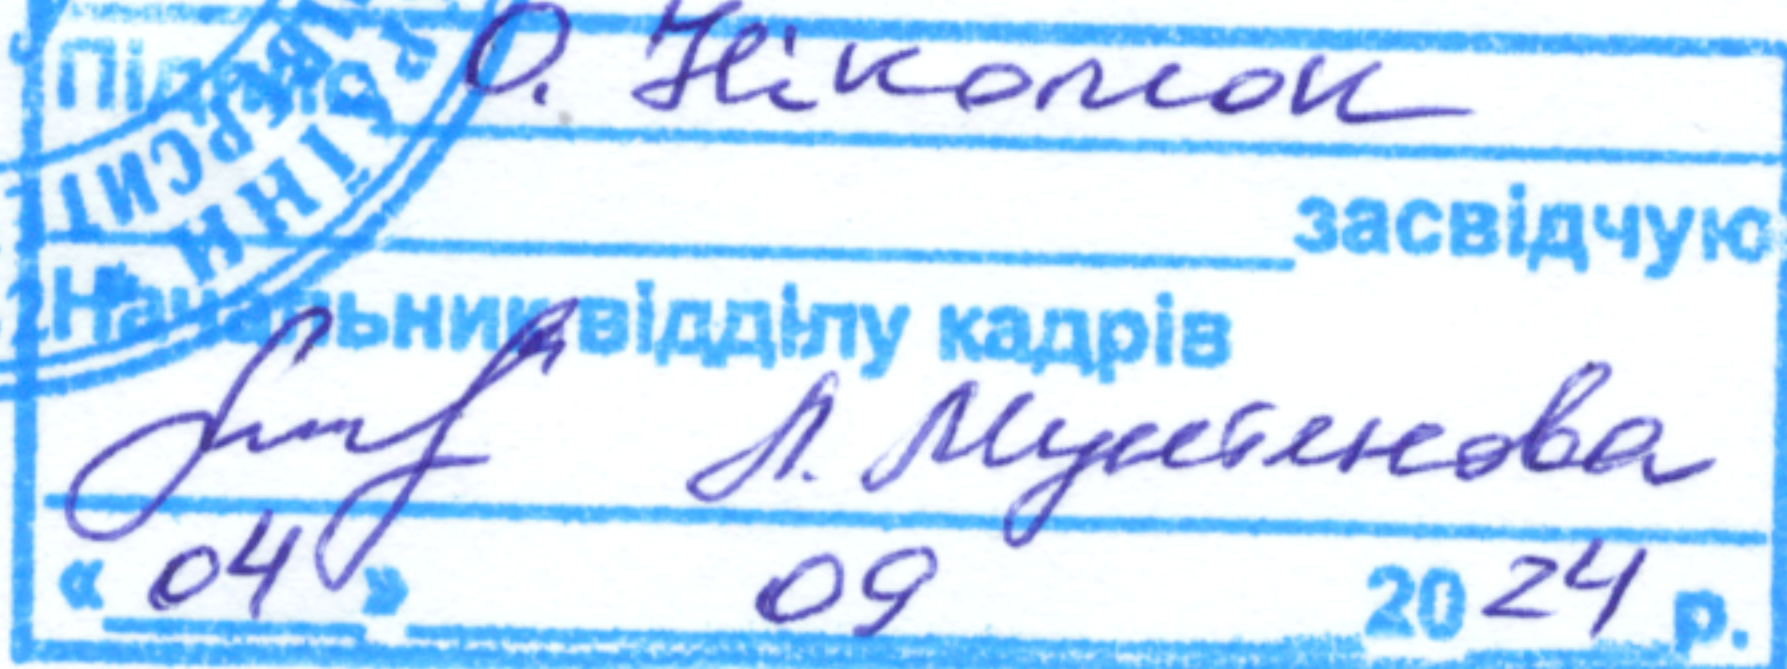 Підпис О. Ніколюк
засвідчую
Начальник відділу кадрів
Л.
« 04 » 09 2024 р.